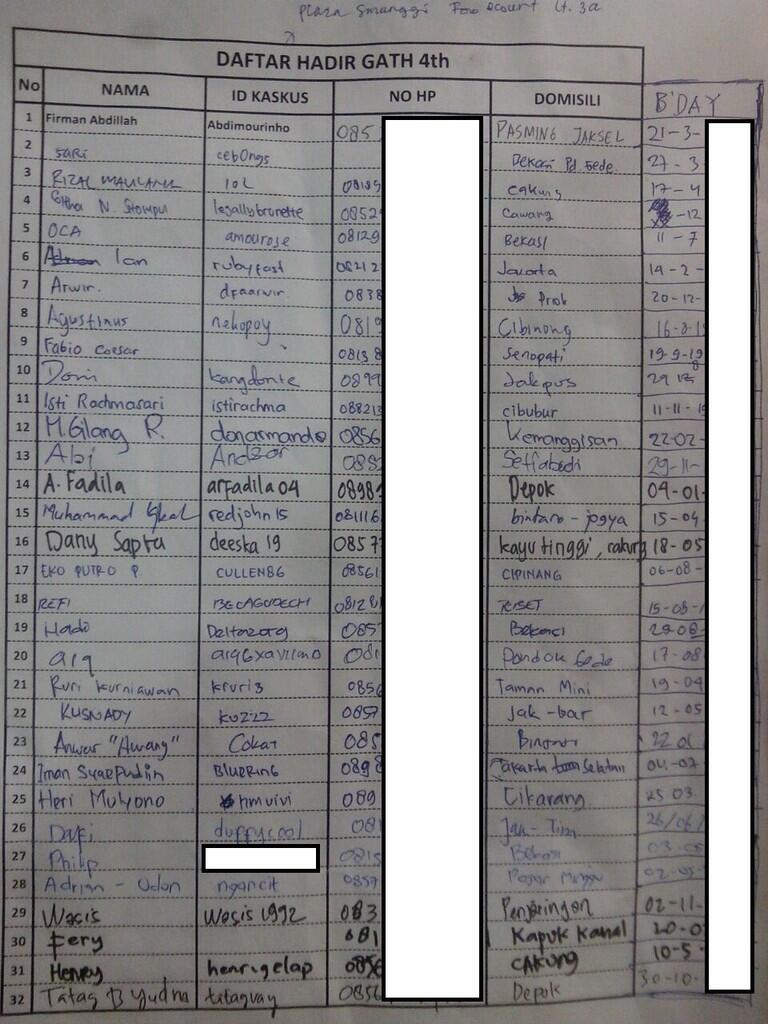 Plaza Smanggi Foodcourt Lt. 3a
DAFTAR HADIR GATH 4th
No NAMA ID KASKUS NO HP DOMISILI B'DAY
1 Firman Abdillah Abdimourinho 085 PASMING JAKSEL 21-3-
2 sari ceb0ngs Bekasi Pd. Gede 27-3
3 RIZAL MAULANA lol 08189 Cakung 17-4
4 N. legallybrunette 0852 Cawang -12
5 OCA amourose 08129 Bekasi 11-7
6 Ian rubyfast 08212 Jakarta 19-2-
7 Arwir. dfaarwir. 0838 20-12-
8 Agustinus nekopoy 0819 Cibinong 16-8-1
9 Fabio Caesar 08138 Senopati 19-9-19
10 Doni kangdonte 0899 Jakpus 29
11 Isti Rachmasari istirachma 088213 cibubur 11-11-1
12 M.Gilang R. donarmando 0856 Kemanggisan 22-02-
13 Abi Andzar 085 Setiabudi 29-11-
14 A. Fadila arfadila04 08983 Depok 04-01
15 Muhammad Iqbal redjohn15 081116 bintaro - jogya 15-04
16 Dany Saptra deeska19 0857 kayu tinggi, cakung 18-05
17 EKO PUTRO P CULLEN86 08561 CIPINANG 06-08-
18 REFI 08128 15-08-1
19 Hadi Deltazorg 085 29-08-
20 081 Pondok Gede 17-08
21 Ruri kurniawan kruri3 0856 Taman Mini 19-04
22 KUSNADY kuzzz 0857 Jak-bar 12-05
23 Anwar "Awang" Cokar 085 22 01
24 Iman Syaepudin BLUERING 0898 Jakarta Selatan 04-07
25 Heri Mulyono himvivi 089 Cikarang 25 03
26 Dafi duppycool 081 Jak-Tim 26/06/
27 Philip 0815 Bekasi 03-05
28 Adrian - Odon ngancit 0857 Pasar Minggu 02-05-
29 Wasis wasis1992 083 Penjaringan 02-11-
30 Fery 081 Kapuk Kamal 20-0
31 Henry henrigelap 0856 Cakung 10-5
32 Tatag B Yudha tatagvay 0856 Depok 30-10-